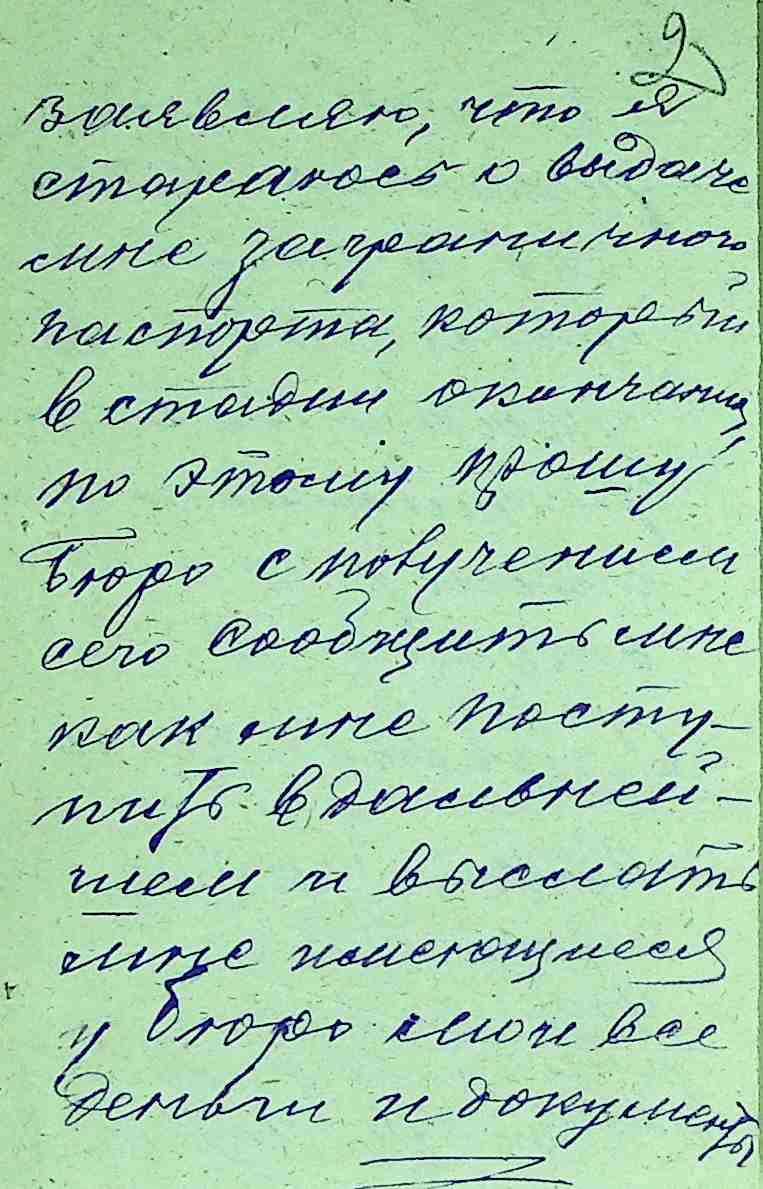 2
заявляю, что я
стараюсь о выдаче
мне заграничного
паспорта, который
в стадии окончания,
по этому прошу
Бюро с получением
сего сообщить мне
как мне посту-
пить в дальней-
шем и выслать
мне имеющиеся
у бюро мои все
деньги и документы